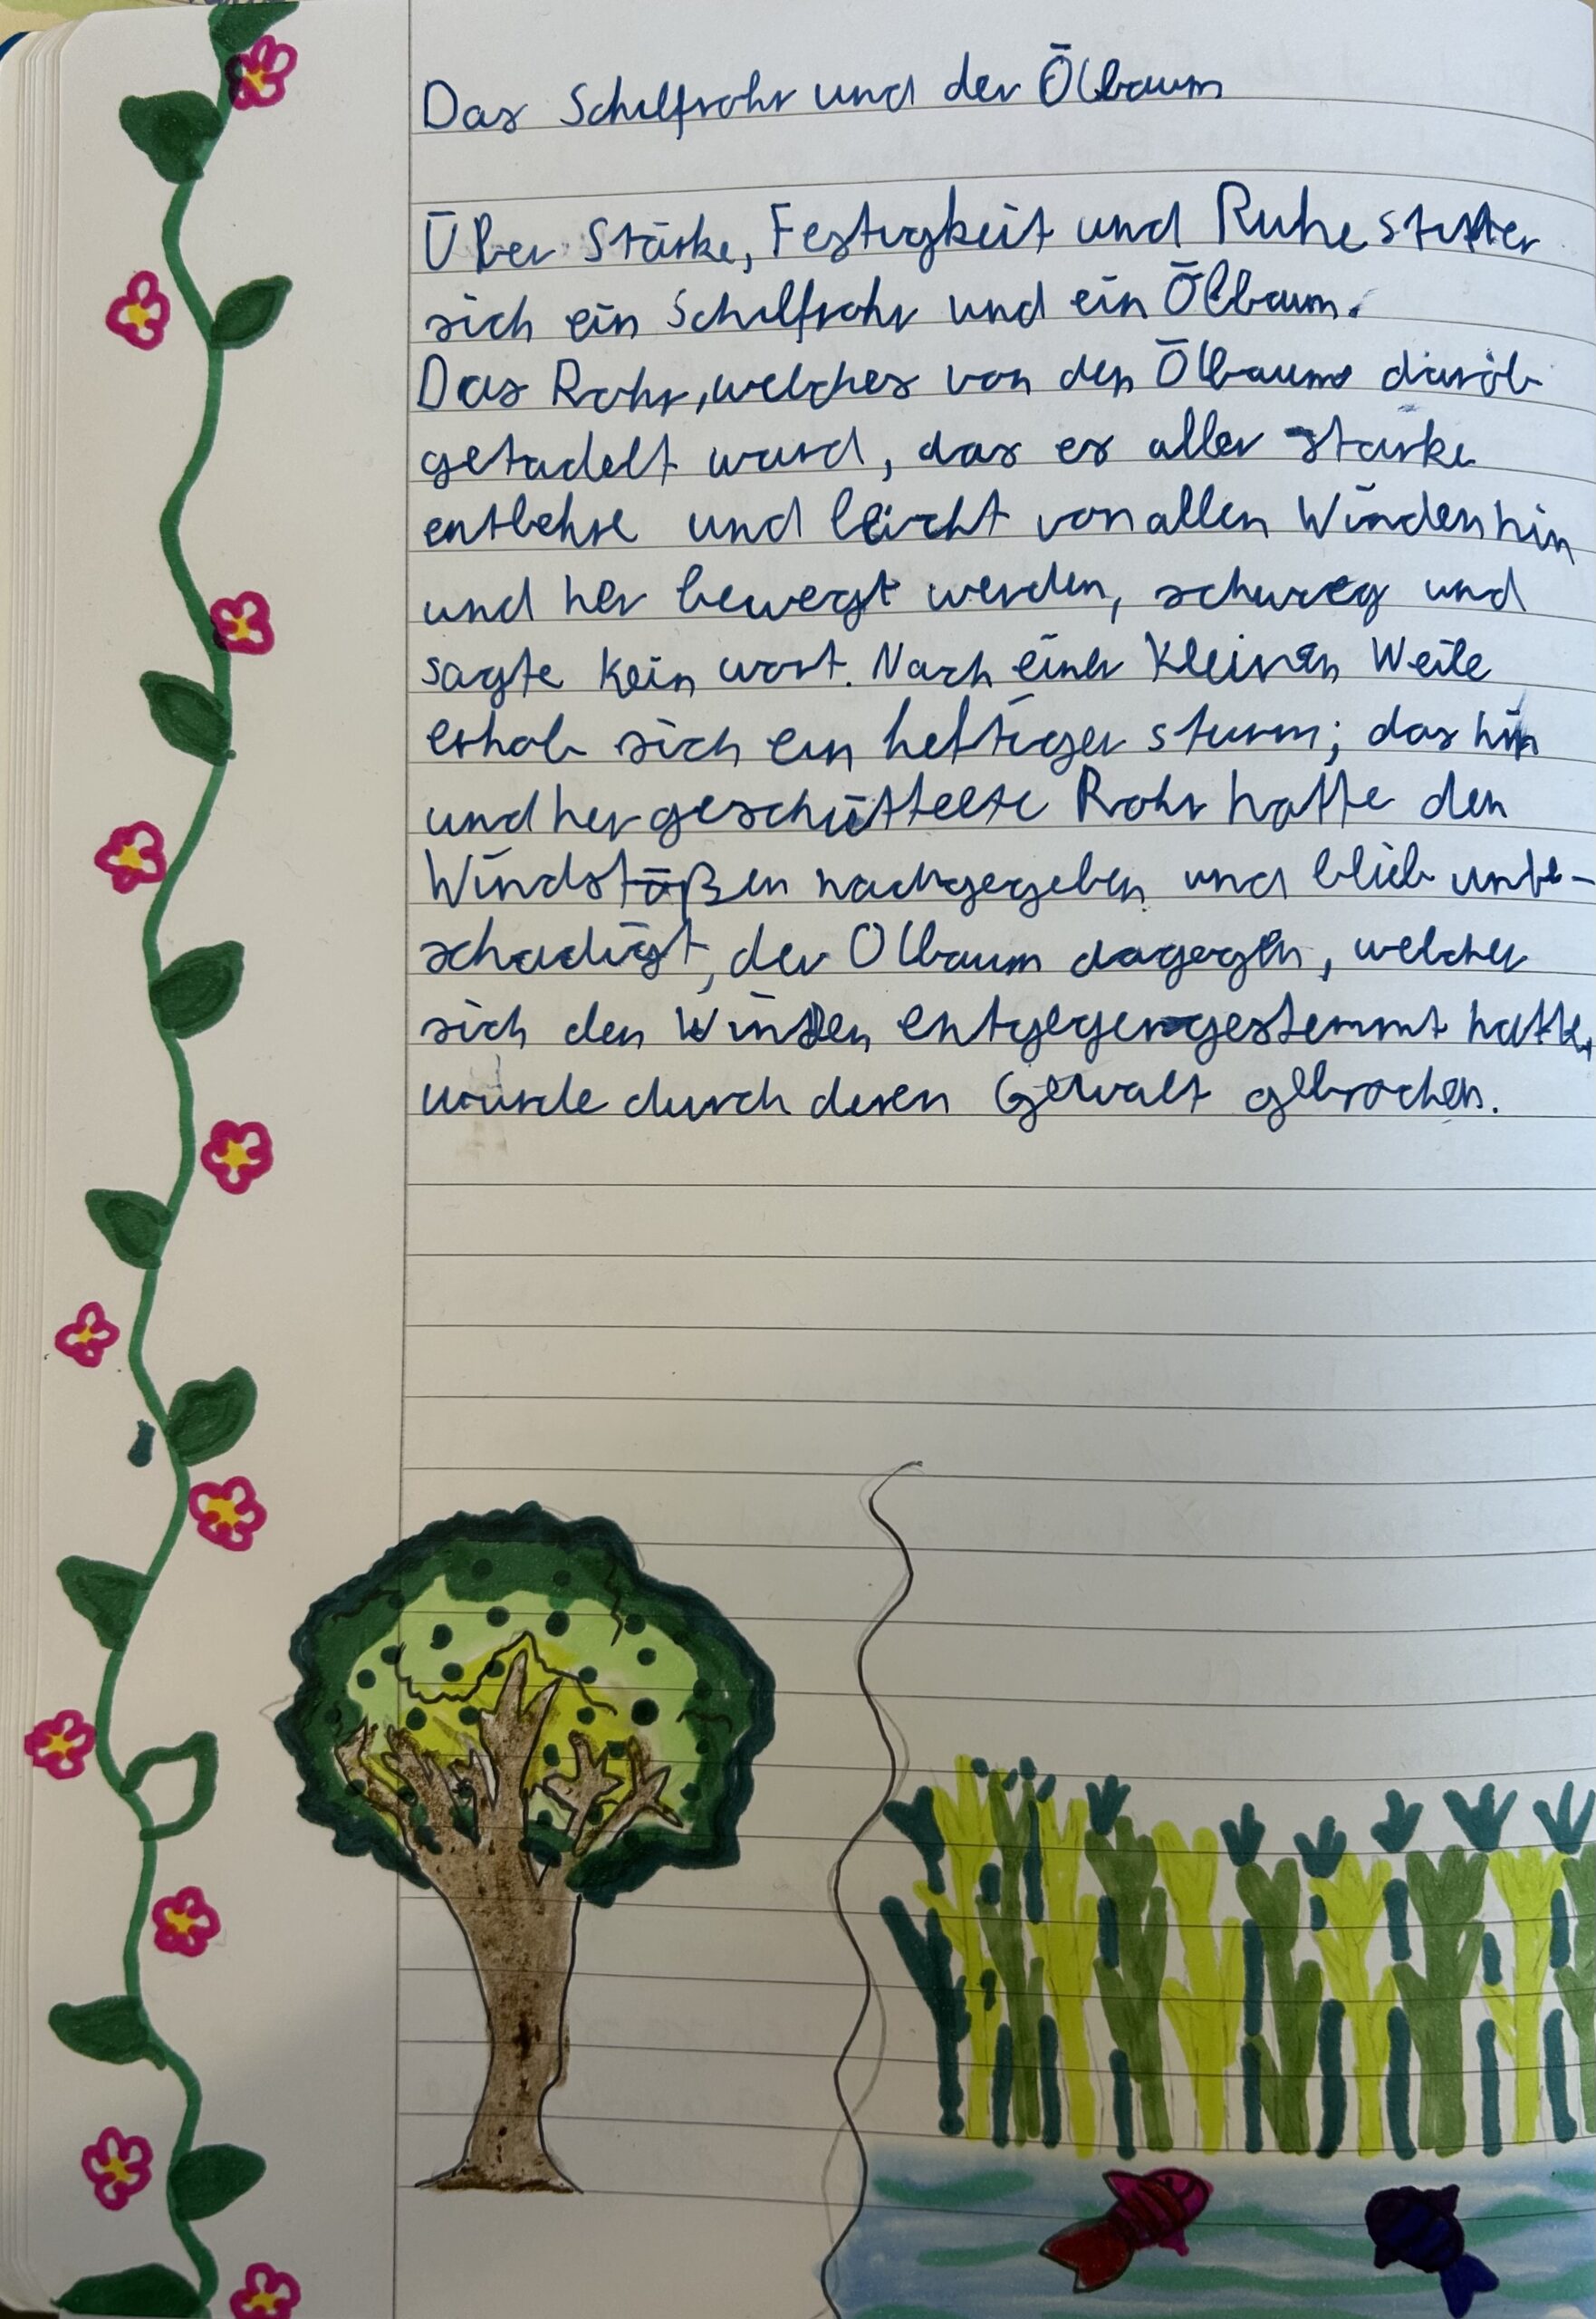 Das Schilfrohr und der Ölbaum
Über Stärke, Festigkeit und Ruhe stritten
sich ein Schilfrohr und ein Ölbaum.
Das Rohr, welches von den Ölbaum darob
getadelt ward, das es aller starke
entbehre und leicht von allen Winden hin
und her bewegt werden, schwieg und
sagte kein wort. Nach einer Kleinen Weile
erhob sich ein heftiger sturm; das hin
und her geschüttelte Rohr hatte den
Windstößen nachgegeben und blieb unbe-
schadigt, der Olbaum dagegen, welcher
sich den Winden entgegengestemmt hatte,
wurde durch deren Gewalt gebrochen.